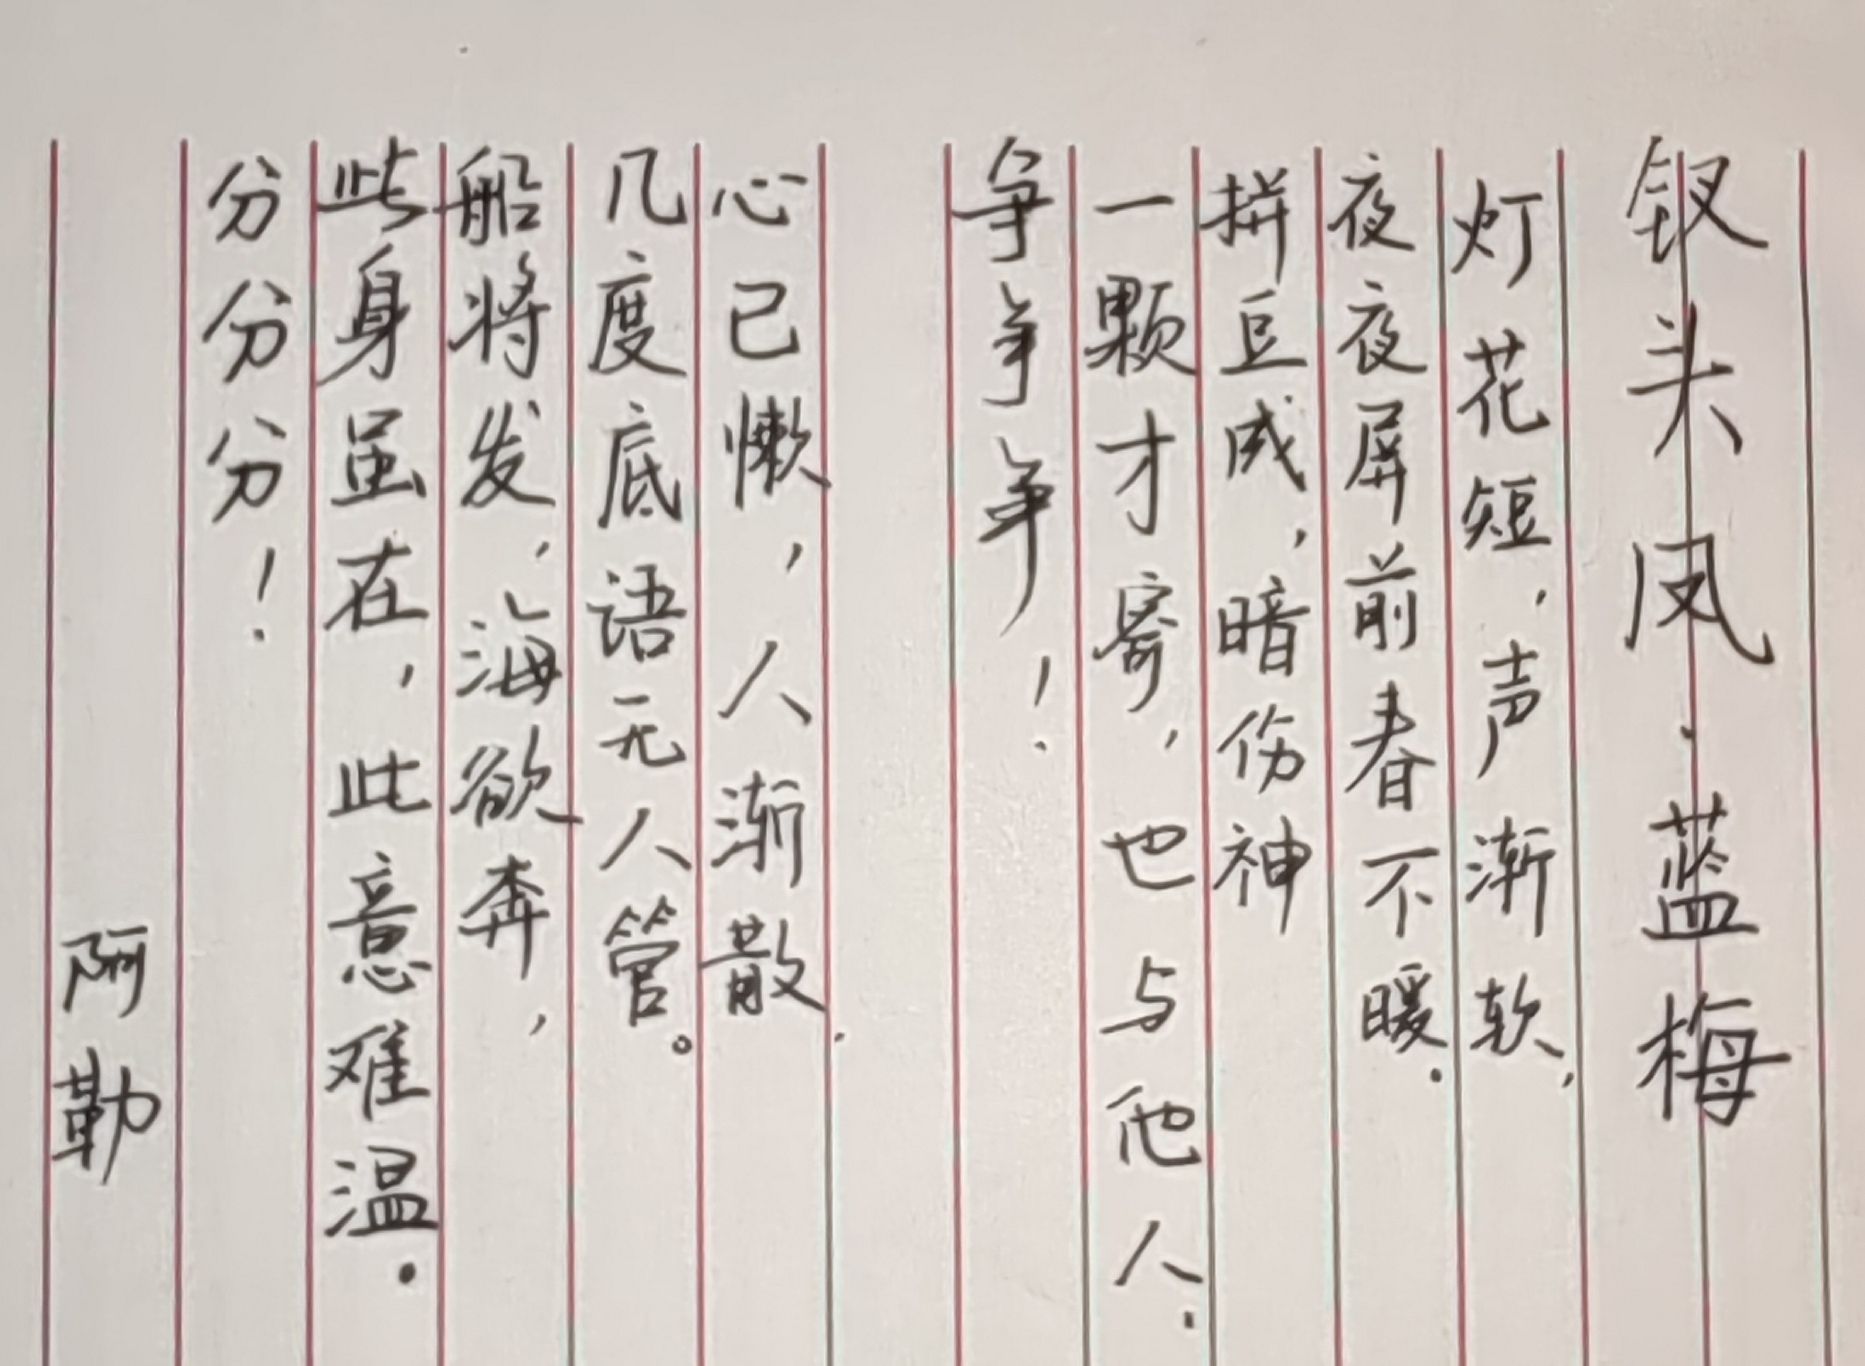 钗头凤·蓝梅
灯花短,声渐软,
夜夜屏前春不暖.
拼豆成,暗伤神
一颗才寄,也与他人.
争争争!
心已懒,人渐散.
几度底语无人管。
船将发,海欲奔,
此身虽在,此意难温.
分分分!
阿勒